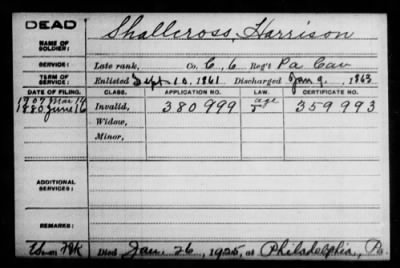 DEAD
NAME OF SOLDIER: Shallcross, Harrison
SERVICE: Late rank, Co. C, 6 Reg't Pa Cav
TERM OF SERVICE: Enlisted Sept 10, 1861 Discharged Jan 9, 1863
DATE OF FILING. CLASS. APPLICATION NO. LAW. CERTIFICATE NO.
1907 Mar 14 age
1880 June 16 Invalid, 380999 359993
Widow,
Minor,
ADDITIONAL SERVICES:
REMARKS:
Died Jan. 26, 1925, at Philadelphia, Pa.